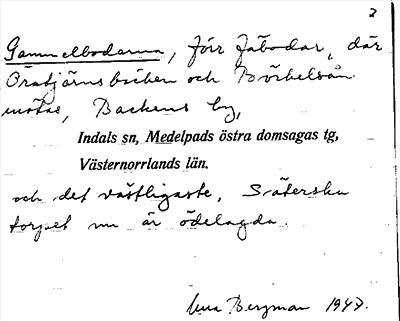 2
Gammelbodarna, förr fäbodar, där
Öratjärnsbäcken och Börkelsån
mötas, Backens by,
Indals sn, Medelpads östra domsagas tg,
Västernorrlands län.
och det västligaste, Säterska
torpet nu är ödelagda.
Bergman 1947.